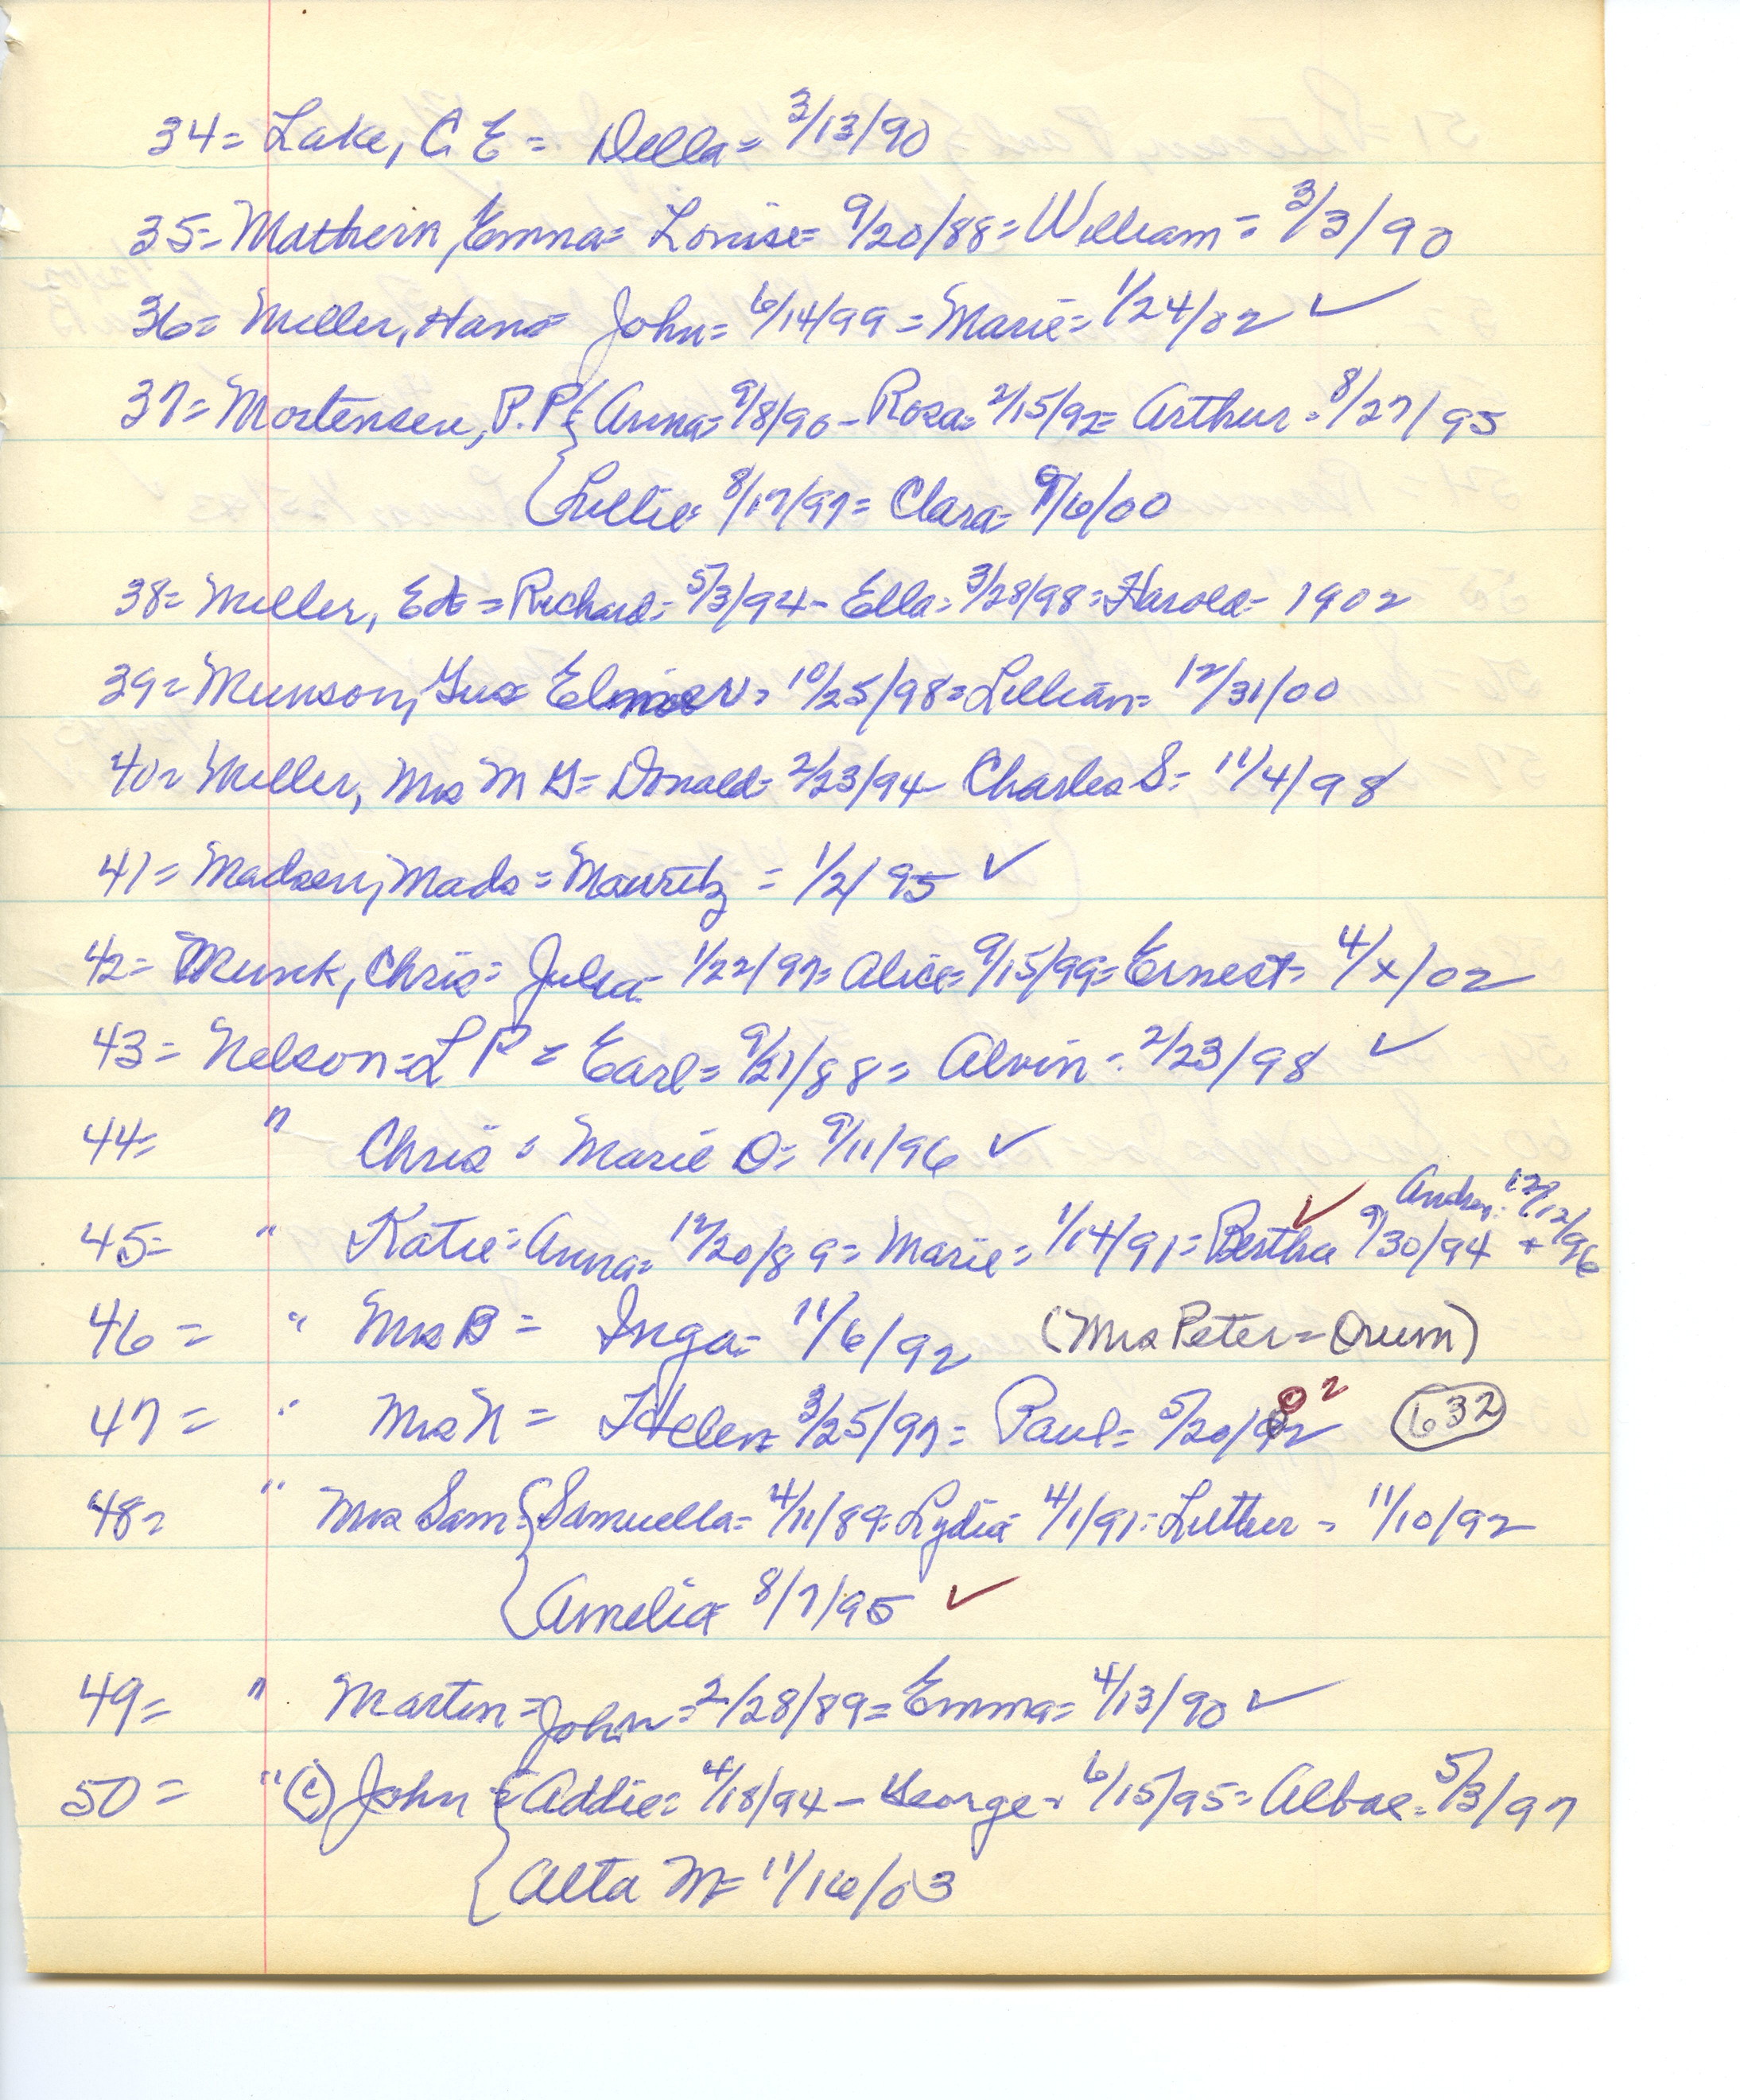 34= Lake, C E = Della= 3/13/90
35= Mathern, Emma= Louise= 9/20/88= William= 3/3/90
36= Miller, Hans= John= 6/14/99= Marie= 1/24/02 ✓
37= Mortensen, P.P { Anna= 9/8/90- Rosa= 2/15/92= Arthur= 8/27/95
{ Lillie= 8/17/97= Clara= 9/6/00
38= Miller, Ed = Richard= 5/3/94- Ella= 3/28/98= Harold= 1902
39= Munson, Gus Elmer= 10/25/98= Lillian= 12/31/00
40= Miller, Mrs M G= Donald= 2/23/94- Charles S= 11/4/98
41= Madsen, Mads= Mauritz = 1/2/95 ✓
42= Munk, Chris= Julia= 1/22/97= Alice= 9/15/99= Ernest= 4/x/02
43= Nelson= L P = Earl= 9/21/88= Alvin= 2/23/98 ✓
44= " Chris= Marie O= 9/11/96 ✓
45= " Katie= Anna= 12/20/89= Marie= 1/14/91= Bertha 9/30/94 + ✓ Andrew= 12/12/96
46= " Mrs B= Inga= 11/6/92 (Mrs Peter= Orum)
47= " Mrs N= Helen= 3/25/97= Paul= 5/20/02 02 632
48= " Mrs Sam= { Samuella= 4/11/89= Lydia= 4/1/91= Luther= 11/10/92
{ Amelia= 8/7/95 ✓
49= " Martin= John= 2/28/89= Emma= 4/13/90 ✓
50= " (C) John= { Addie= 4/18/94- George= 6/15/95= Albae= 5/3/97
{ Alta M= 11/16/03